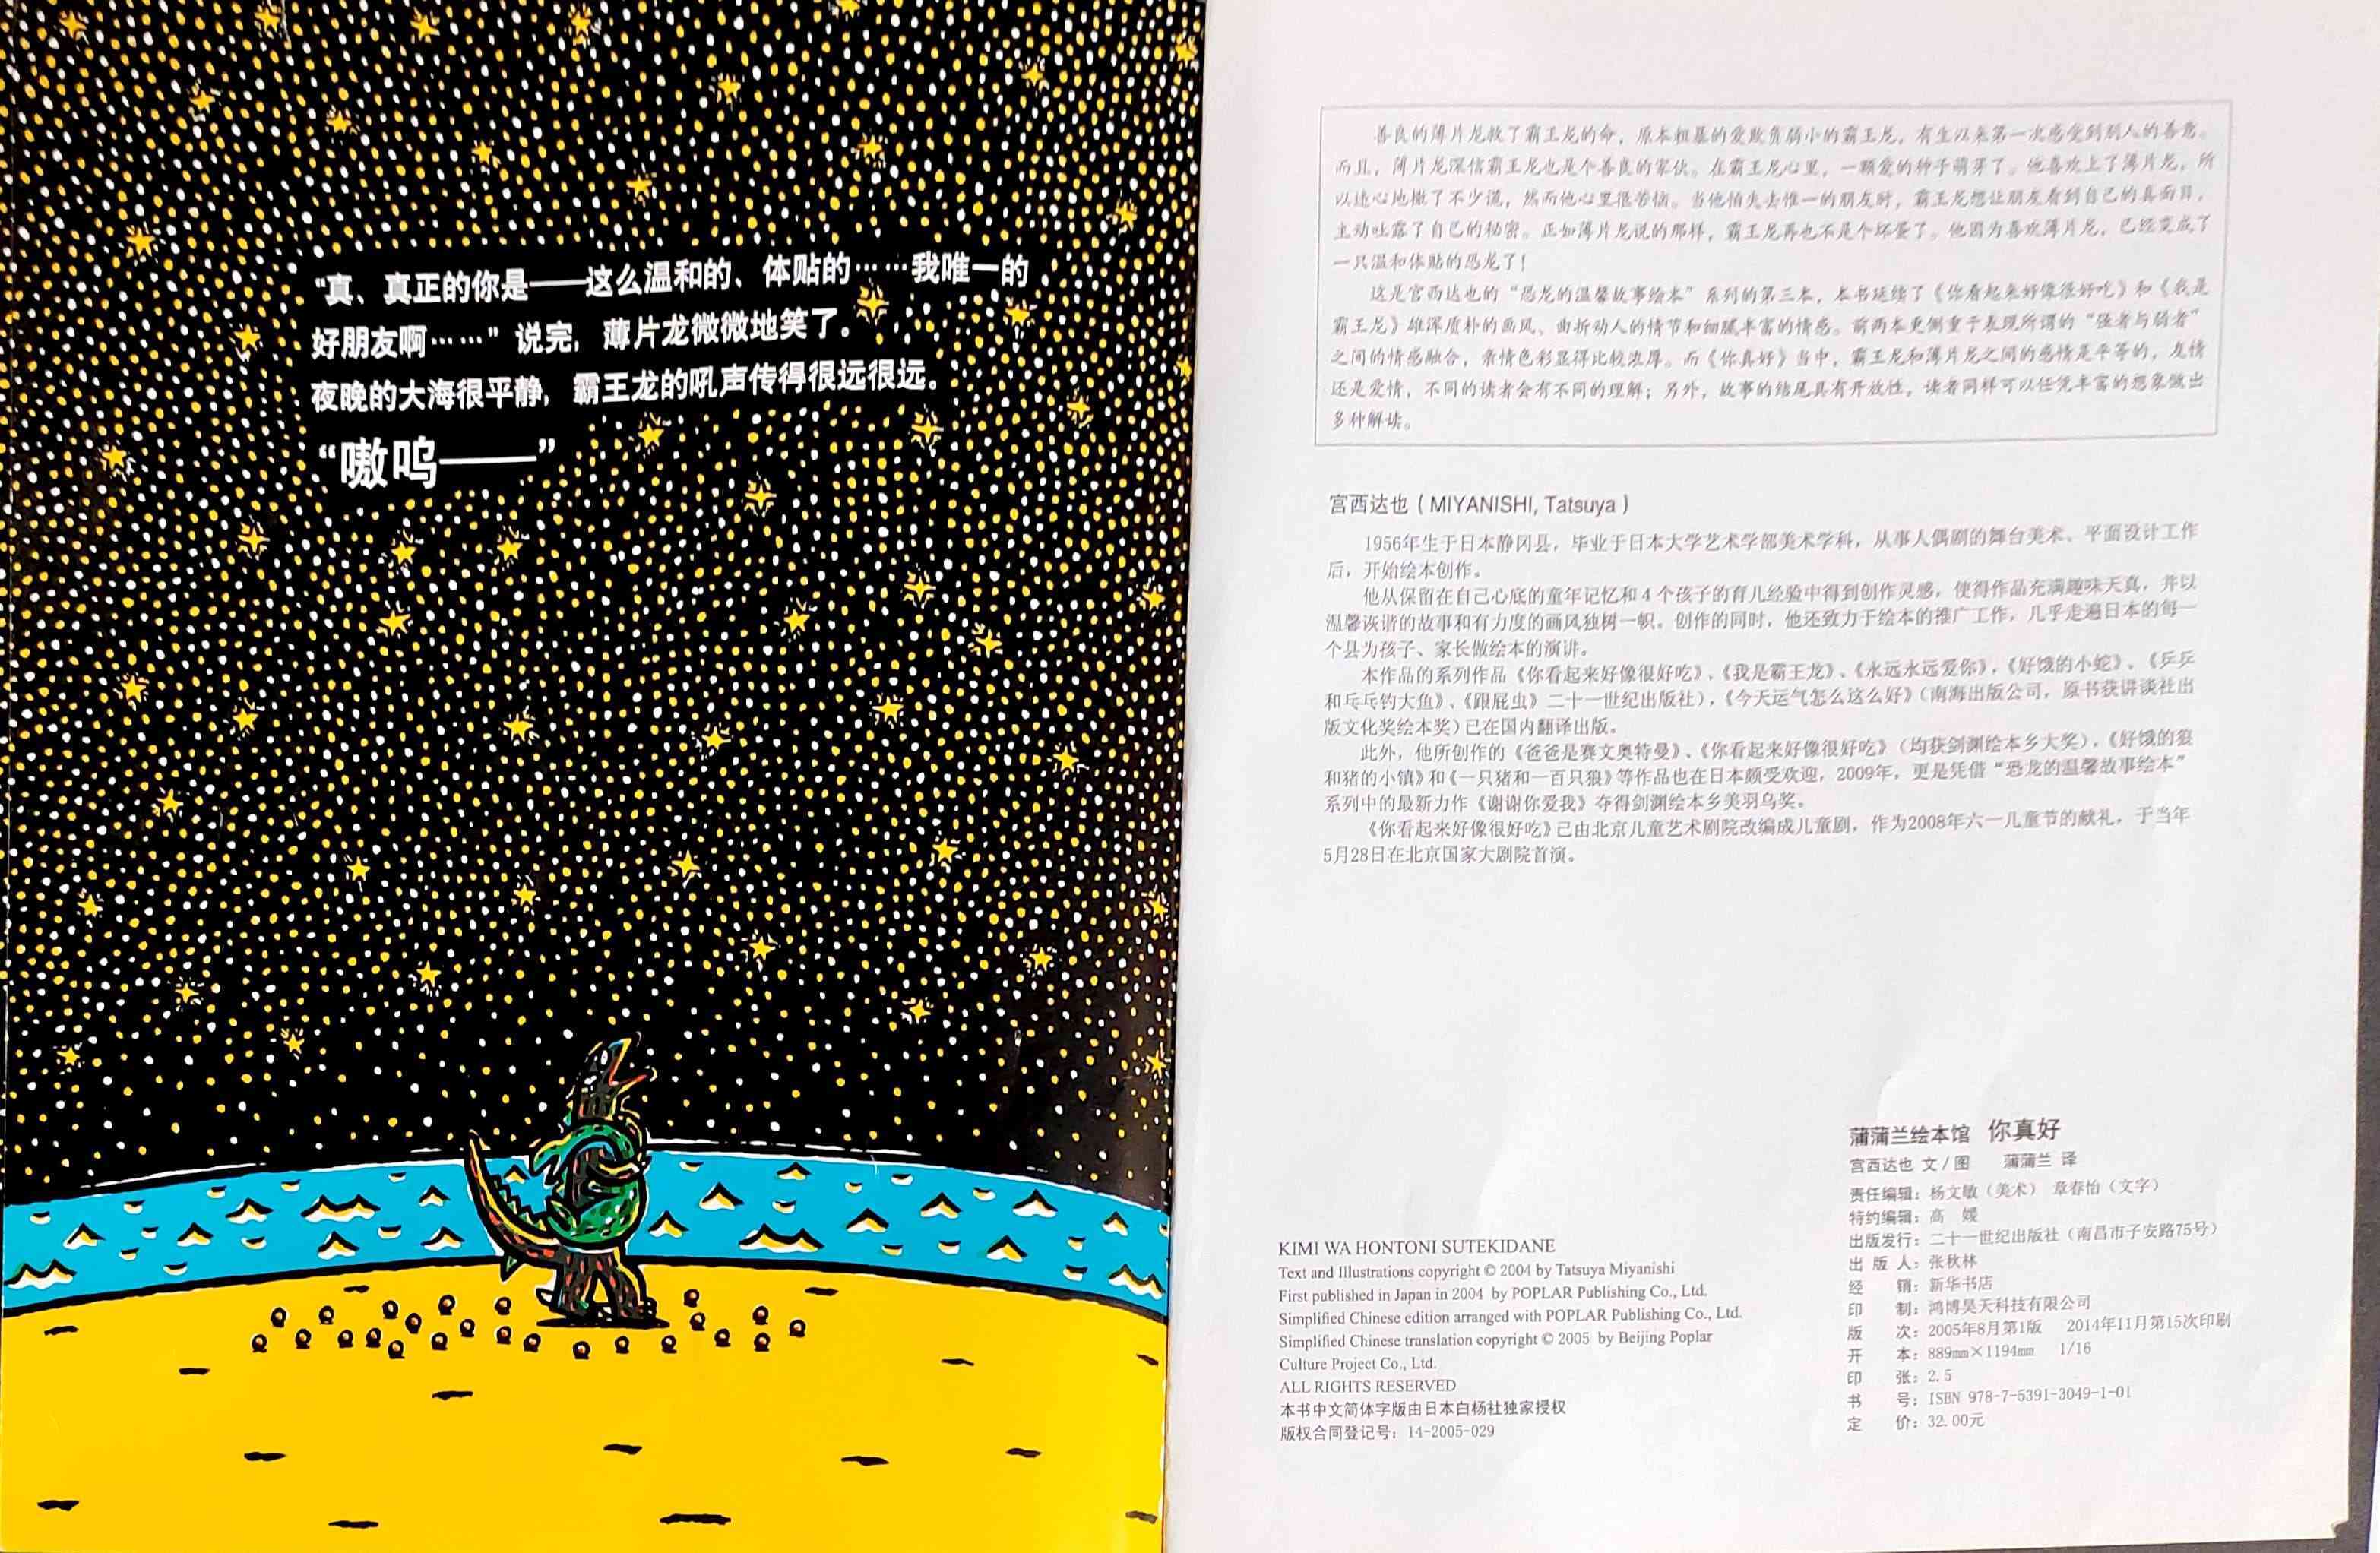 “真、真正的你是——这么温和的、体贴的……我唯一的
好朋友啊……”说完，薄片龙微微地笑了。
夜晚的大海很平静，霸王龙的吼声传得很远很远。
“嗷呜——”
善良的薄片龙救了霸王龙的命，原本粗暴的爱欺负弱小的霸王龙，有生以来第一次感受到别人的善意。
而且，薄片龙深信霸王龙也是个善良的家伙。在霸王龙心里，一颗爱的种子萌芽了。他喜欢上了薄片龙，所
以违心地撒了不少谎，然而他心里很苦恼。当他怕失去惟一的朋友时，霸王龙想让朋友看到自己的真面目，
主动吐露了自己的秘密。正如薄片龙说的那样，霸王龙再也不是个坏蛋了。他因为喜欢薄片龙，已经变成了
一只温和体贴的恐龙了！
这是宫西达也的“恐龙的温馨故事绘本”系列的第三本，本书延续了《你看起来好像很好吃》和《我是
霸王龙》雄浑质朴的画风、曲折动人的情节和细腻丰富的情感。前两本更侧重于表现所谓的“强者与弱者”
之间的情感融合，亲情色彩显得比较浓厚。而《你真好》当中，霸王龙和薄片龙之间的感情是平等的，友情
还是爱情，不同的读者会有不同的理解；另外，故事的结尾具有开放性，读者同样可以任凭丰富的想象做出
多种解读。
宫西达也（MIYANISHI, Tatsuya）
1956年生于日本静冈县，毕业于日本大学艺术学部美术学科，从事人偶剧的舞台美术、平面设计工作
后，开始绘本创作。
他从保留在自己心底的童年记忆和4个孩子的育儿经验中得到创作灵感，使得作品充满趣味天真，并以
温馨诙谐的故事和有力度的画风独树一帜。创作的同时，他还致力于绘本的推广工作，几乎走遍日本的每一
个县为孩子、家长做绘本的演讲。
本作品的系列作品《你看起来好像很好吃》、《我是霸王龙》、《永远永远爱你》，《好饿的小蛇》、《乒乒
和乓乓钓大鱼》、《跟屁虫》二十一世纪出版社），《今天运气怎么这么好》（南海出版公司，原书获讲谈社出
版文化奖绘本奖）已在国内翻译出版。
此外，他所创作的《爸爸是赛文奥特曼》、《你看起来好像很好吃》（均获剑渊绘本乡大奖），《好饿的狼
和猪的小镇》和《一只猪和一百只狼》等作品也在日本颇受欢迎，2009年，更是凭借“恐龙的温馨故事绘本”
系列中的最新力作《谢谢你爱我》夺得剑渊绘本乡美羽乌奖。
《你看起来好像很好吃》已由北京儿童艺术剧院改编成儿童剧，作为2008年六一儿童节的献礼，于当年
5月28日在北京国家大剧院首演。
KIMI WA HONTONI SUTEKIDANE
Text and Illustrations copyright © 2004 by Tatsuya Miyanishi
First published in Japan in 2004 by POPLAR Publishing Co., Ltd.
Simplified Chinese edition arranged with POPLAR Publishing Co., Ltd.
Simplified Chinese translation copyright © 2005 by Beijing Poplar
Culture Project Co., Ltd.
ALL RIGHTS RESERVED
本书中文简体字版由日本白杨社独家授权
版权合同登记号：14-2005-029
蒲蒲兰绘本馆 你真好
宫西达也 文/图 蒲蒲兰 译
责任编辑：杨文敏（美术） 章春怡（文字）
特约编辑：高 媛
出版发行：二十一世纪出版社（南昌市子安路75号）
出 版 人：张秋林
经 销：新华书店
印 制：鸿博昊天科技有限公司
版 次：2005年8月第1版 2014年11月第15次印刷
开 本：889mm×1194mm 1/16
印 张：2.5
书 号：ISBN 978-7-5391-3049-1-01
定 价：32.00元